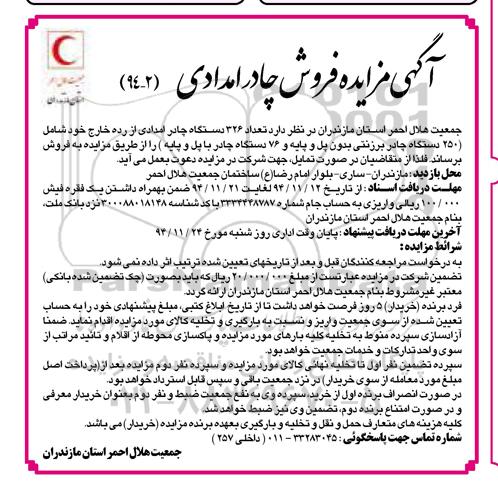 آگهی مزایده فروش چادر امدادی (۲-۹٤)
جمعیت هلال احمر
استان مازندران
جمعیت هلال احمر استان مازندران در نظر دارد تعداد ۳۲۶ دستگاه چادر امدادی از رده خارج خود شامل
(۲۵۰ دستگاه چادر برزنتی بدون پل و پایه و ۷۶ دستگاه چادر با پل و پایه ) را از طریق مزایده به فروش
برساند. فلذا از متقاضیان در صورت تمایل، جهت شرکت در مزایده دعوت بعمل می آید.
محل بازدید: مازندران-ساری-بلوار امام رضا(ع) ساختمان جمعیت هلال احمر
مهلت دریافت اسناد : از تاریخ ۹۴/۱۱/۱۲ لغایت ۹۴/۱۱/۲۱ ضمن بهمراه داشتن یک فقره فیش
۱۰۰/۰۰۰ ریالی واریزی به حساب جام شماره ۳۳۳۴۴۸۷۸۷ با کد شناسه ۳۰۰۰۸۸۰۱۸۱۴۸ نزد بانک ملت،
بنام جمعیت هلال احمر استان مازندران
آخرین مهلت دریافت پیشنهاد : پایان وقت اداری روز شنبه مورخ ۹۴/۱۱/۲۴
شرائط مزایده :
به درخواست مراجعه کنندگان قبل و بعد از تاریخهای تعیین شده ترتیب اثر داده نمی شود.
تضمین شرکت در مزایده عبارتست از مبلغ ۲۰/۰۰۰/۰۰۰ ریال که باید بصورت (چک تضمین شده بانکی)
معتبر غیر مشروط بنام جمعیت هلال احمر استان مازندران ارائه گردد.
فرد برنده (خریدار) ۵ روز فرصت خواهد داشت تا از تاریخ ابلاغ کتبی، مبلغ پیشنهادی خود را به حساب
تعیین شده از سوی جمعیت واریز و نسبت به بارگیری و تخلیه کالای مورد مزایده اقدام نماید. ضمنا
آزادسازی سپرده منوط به تخلیه کلیه بارهای مورد مزایده و پاکسازی محوطه از اقلام و تائید مراتب از
سوی واحد تدارکات و خدمات جمعیت خواهد بود.
سپرده تضمین نفر اول تا تخلیه نهائی کالای مورد مزایده و سپرده نفر دوم مزایده بعد از(پرداخت اصل
مبلغ مورد معامله از سوی خریدار) در نزد جمعیت باقی و سپس قابل استرداد خواهد بود.
در صورت انصراف برنده اول از خرید، سپرده وی به نفع جمعیت ضبط و نفر دوم بعنوان خریدار معرفی
و در صورت امتناع برنده دوم، تضمین وی نیز ضبط خواهد شد.
کلیه هزینه های متعارف حمل و نقل و تخلیه و بارگیری بعهده برنده مزایده (خریدار) می باشد.
شماره تماس جهت پاسخگوئی : ۳۳۲۸۳۰۴۵ - ۰۱۱ ( داخلی ۲۵۷ )
جمعیت هلال احمر استان مازندران